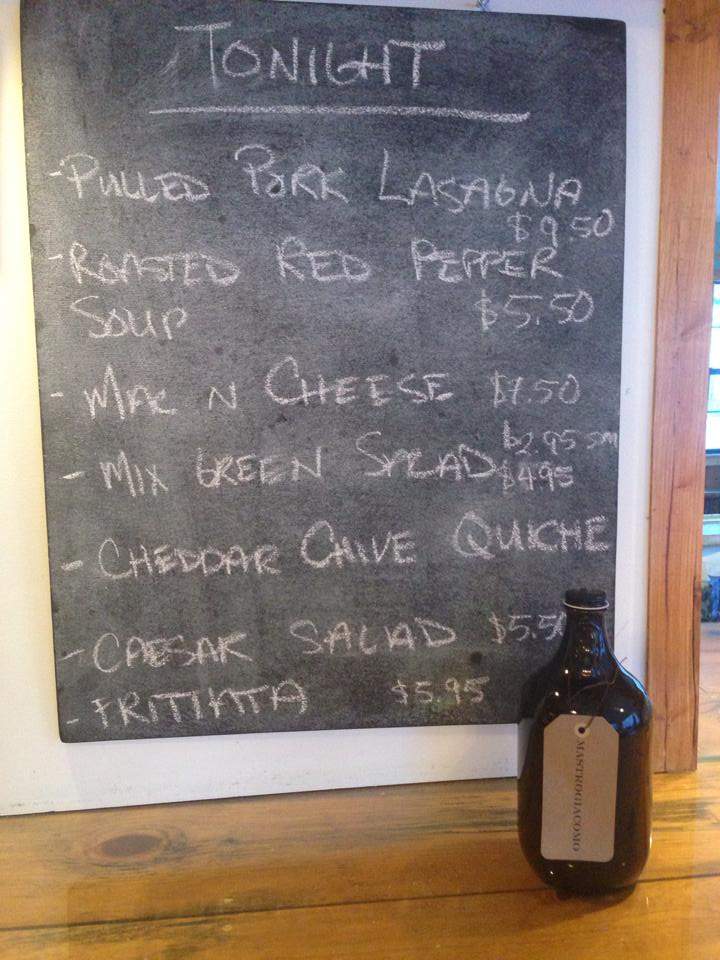 TONIGHT
- PULLED PORK LASAGNA
$9.50
- ROASTED RED PEPPER
SOUP $5.50
- MAC N CHEESE $7.50
$2.95 sm
- MIX GREEN SALAD $4.95
- CHEDDAR CHIVE QUICHE
- CAESAR SALAD $5.5
- FRITTATA $5.95
MASTROGIACOMO